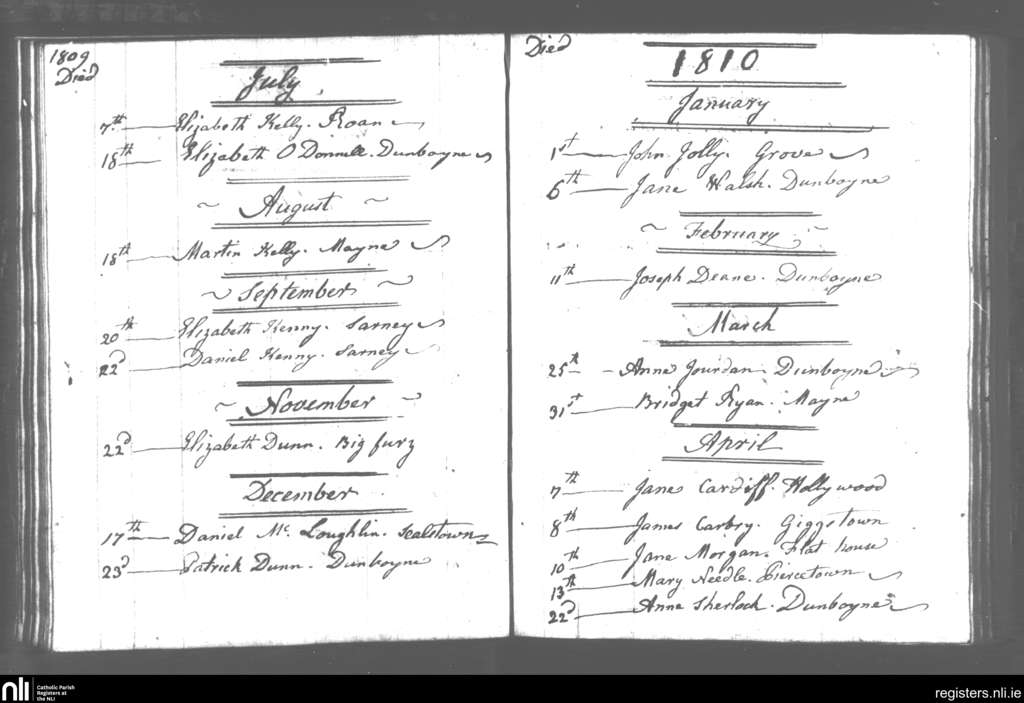 1809
Died
July
7th Elizabeth Kelly. Roan
18th Elizabeth O Donnell. Dunboyne
August
18th Martin Kelly. Mayne
September
20th Elizabeth Kenny. Sarney
22d Daniel Kenny. Sarney
November
22d Elizabeth Dunn. Big furz
December
17th Daniel Mc Loughlin. Sealstown
23d Patrick Dunn. Dunboyne
Died
1810
January
1st John Jolly. Grove
6th Jane Walsh. Dunboyne
February
11th Joseph Deane. Dunboyne
March
25th Anne Jourdan. Dunboyne
31st Bridget Ryan. Mayne
April
7th Jane Cardiff. Hollywood
8th James Carbry. Giggstown
10th Jane Morgan. Flat house
13th Mary Needle. Piercetown
22d Anne Sherlock. Dunboyne
nli Catholic Parish
Registers at
the NLI
registers.nli.ie